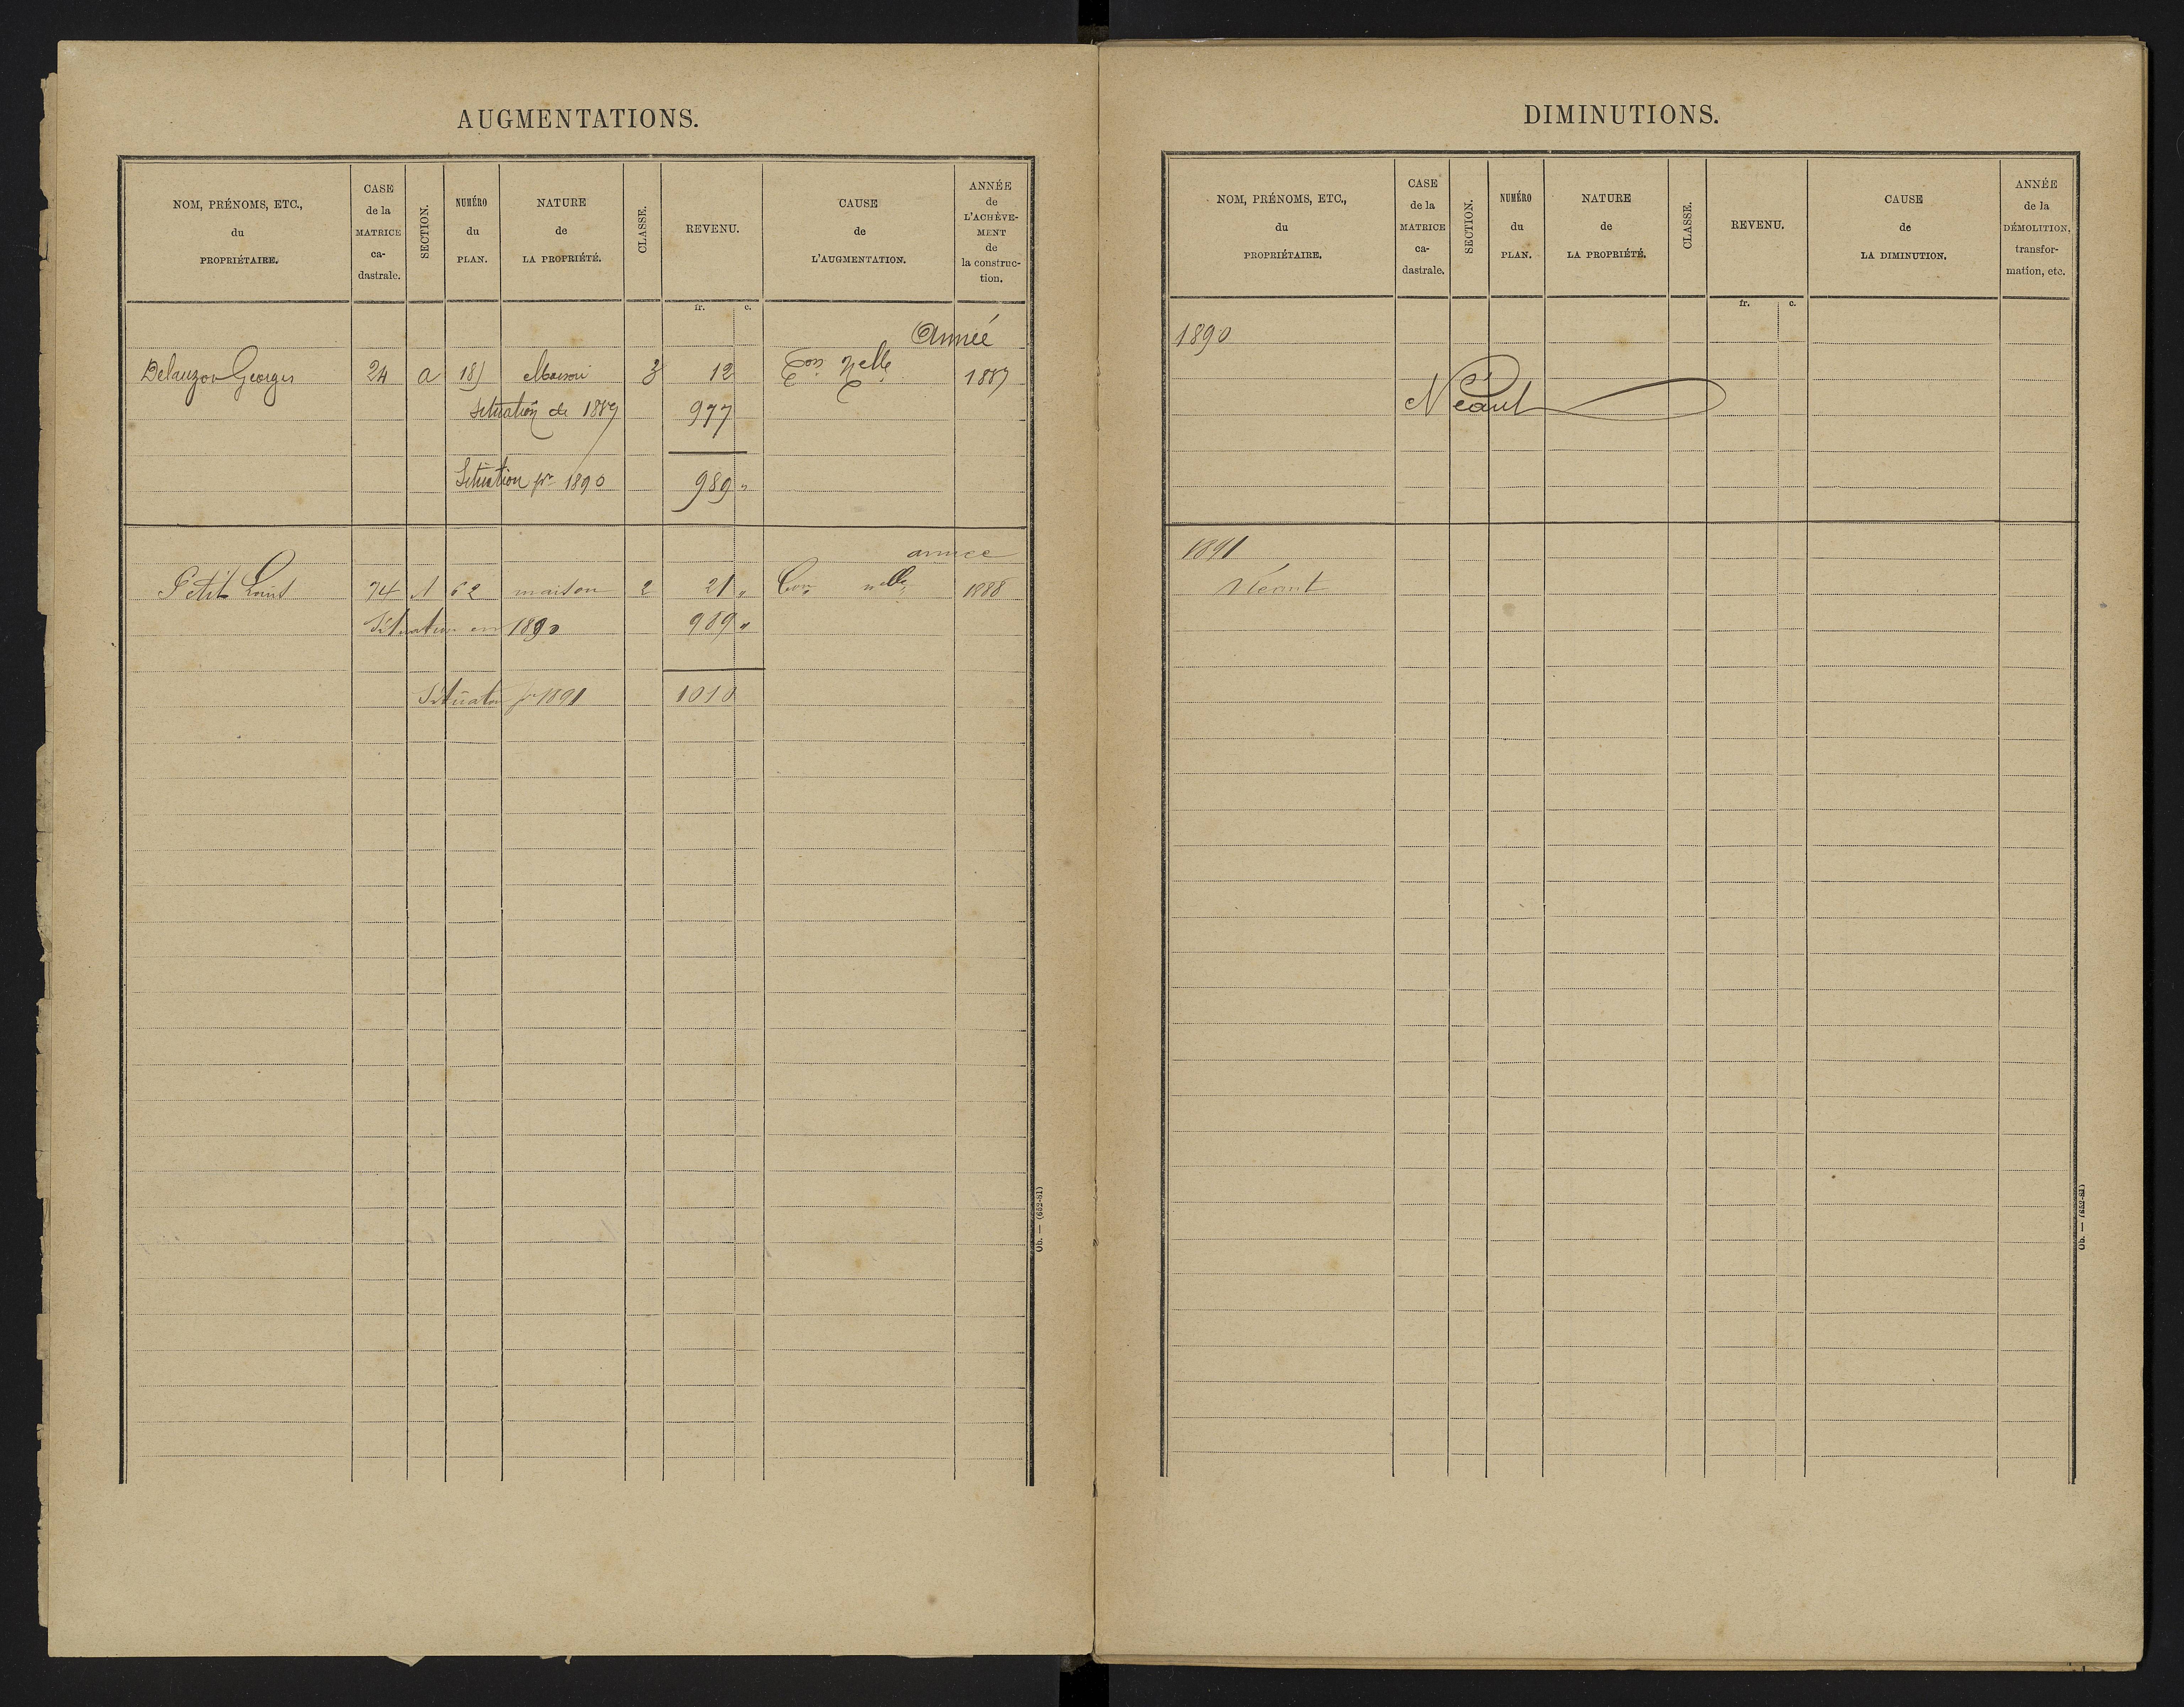 AUGMENTATIONS.
NOM, PRÉNOMS, ETC., du PROPRIÉTAIRE.
CASE de la MATRICE ca-dastrale.
SECTION.
NUMÉRO du PLAN.
NATURE de LA PROPRIÉTÉ.
CLASSE.
REVENU.
CAUSE de L'AUGMENTATION.
ANNÉE de L'ACHÈVE-MENT de la construc-tion.
fr. c.
Année
Delauzon Georges 24 a 18 Maison 3 12 Con Nelle 1887
Situation de 1889 977
Situation pr 1890 989 "
année
Petit Louis 74 A 62 maison 2 21 " Con nelle 1888
Situation en 1890 989 "
Situation pr 1891 1010
Ob. — (652-81)
DIMINUTIONS.
NOM, PRÉNOMS, ETC., du PROPRIÉTAIRE.
CASE de la MATRICE ca-dastrale.
SECTION.
NUMÉRO du PLAN.
NATURE de LA PROPRIÉTÉ.
CLASSE.
REVENU.
CAUSE de LA DIMINUTION.
ANNÉE de la DÉMOLITION, transfor-mation, etc.
fr. c.
1890
Néant
1891
Néant
Ob. — (652-81)